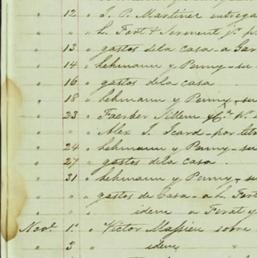 " 12 " S. P. Martinez entrega
" " " L. Fort & Serment
" 13 " gastos de la casa - a
" 14 " Lehmann y Penny - su
" 16 " gastos de la casa
" 18 " Lehmann y Penny - su
" 23 " Faerber Sillem & Cª
" " " Alex S. Scard - por
" 24 " Lehmann y Penny - su
" 27 " gastos de la casa
" 31 " Lehmann y Penny - su
" " " gastos de Casa - a L. Fort
" " " idem a Ferat y
Novr. 1º " Victor Massieu sobre
" 3 " idem "